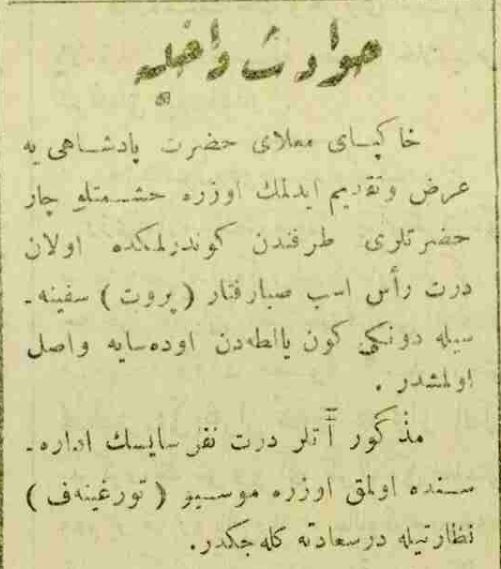 حوادث داخليه
خاكپای معلای حضرت پادشاهی يه
عرض وتقديم ايدلمك اوزره حشمتلو چار
حضرتلری طرفندن كوندرلمكده اولان
درت رأس اسب صبارفتار (پروت) سفينه ـ
سيله دونكی كون يالطه‌دن اوده‌سايه واصل
اولمشدر .
مذكور آتلر درت نفر سايسك اداره ـ
سنده اولمق اوزره موسيو (تورغينه‌ف)
نظارتيله درسعادته كله‌جكدر.